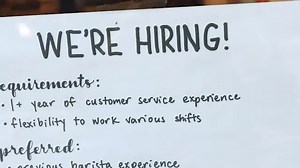 WE'RE HIRING!
equirements:
• 1+ year of customer service experience
• flexibility to work various shifts
preferred:
previous barista experience